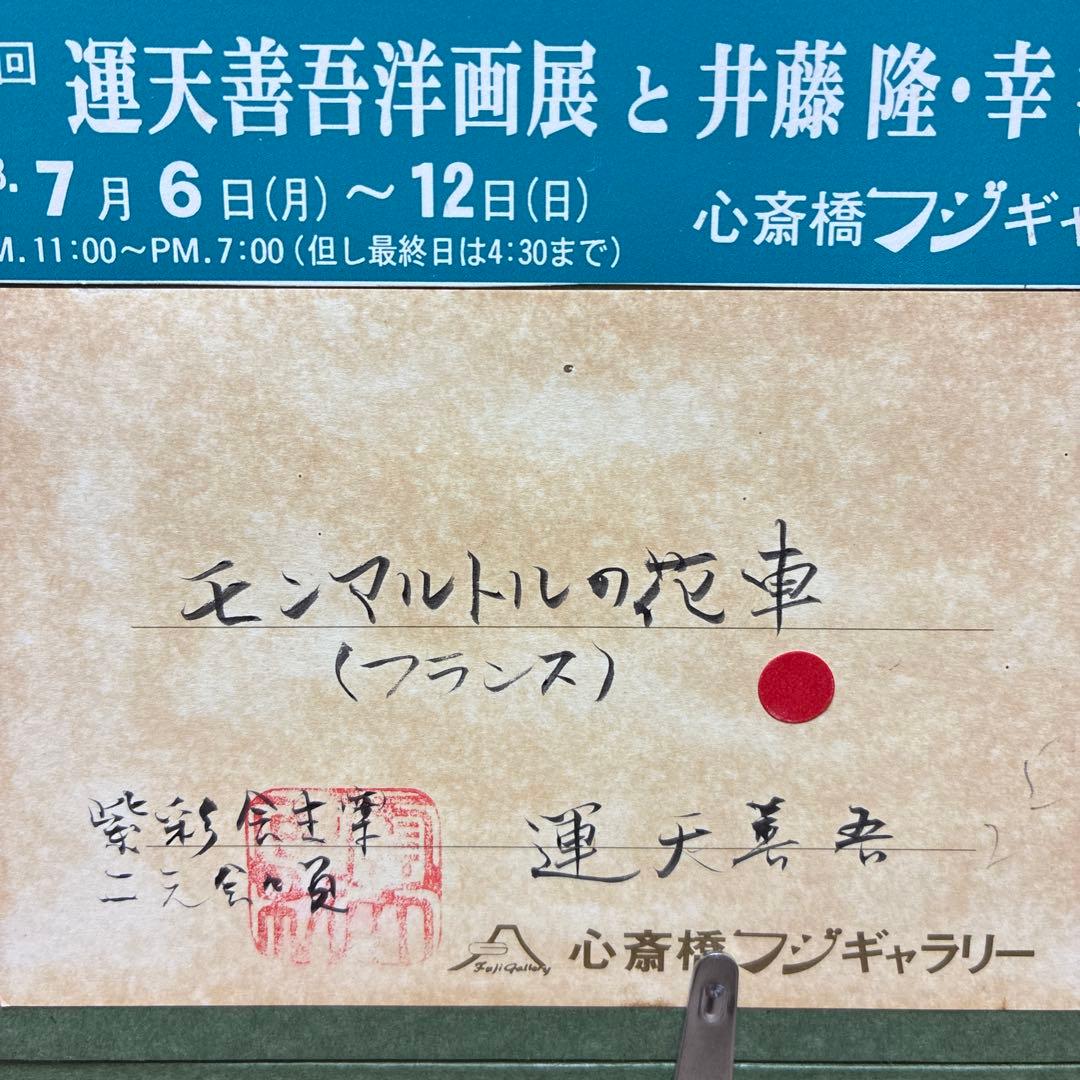 回 運天善吾洋画展と井藤 隆・幸
3.7月6日(月)～12日(日)
M.11:00～PM.7:00(但し最終日は4:30まで)
心斎橋フジギャ
モンマルトルの花車
(フランス)
紫彩会主宰
二元会会員
運天善吾
Fuji Gallery 心斎橋フジギャラリー